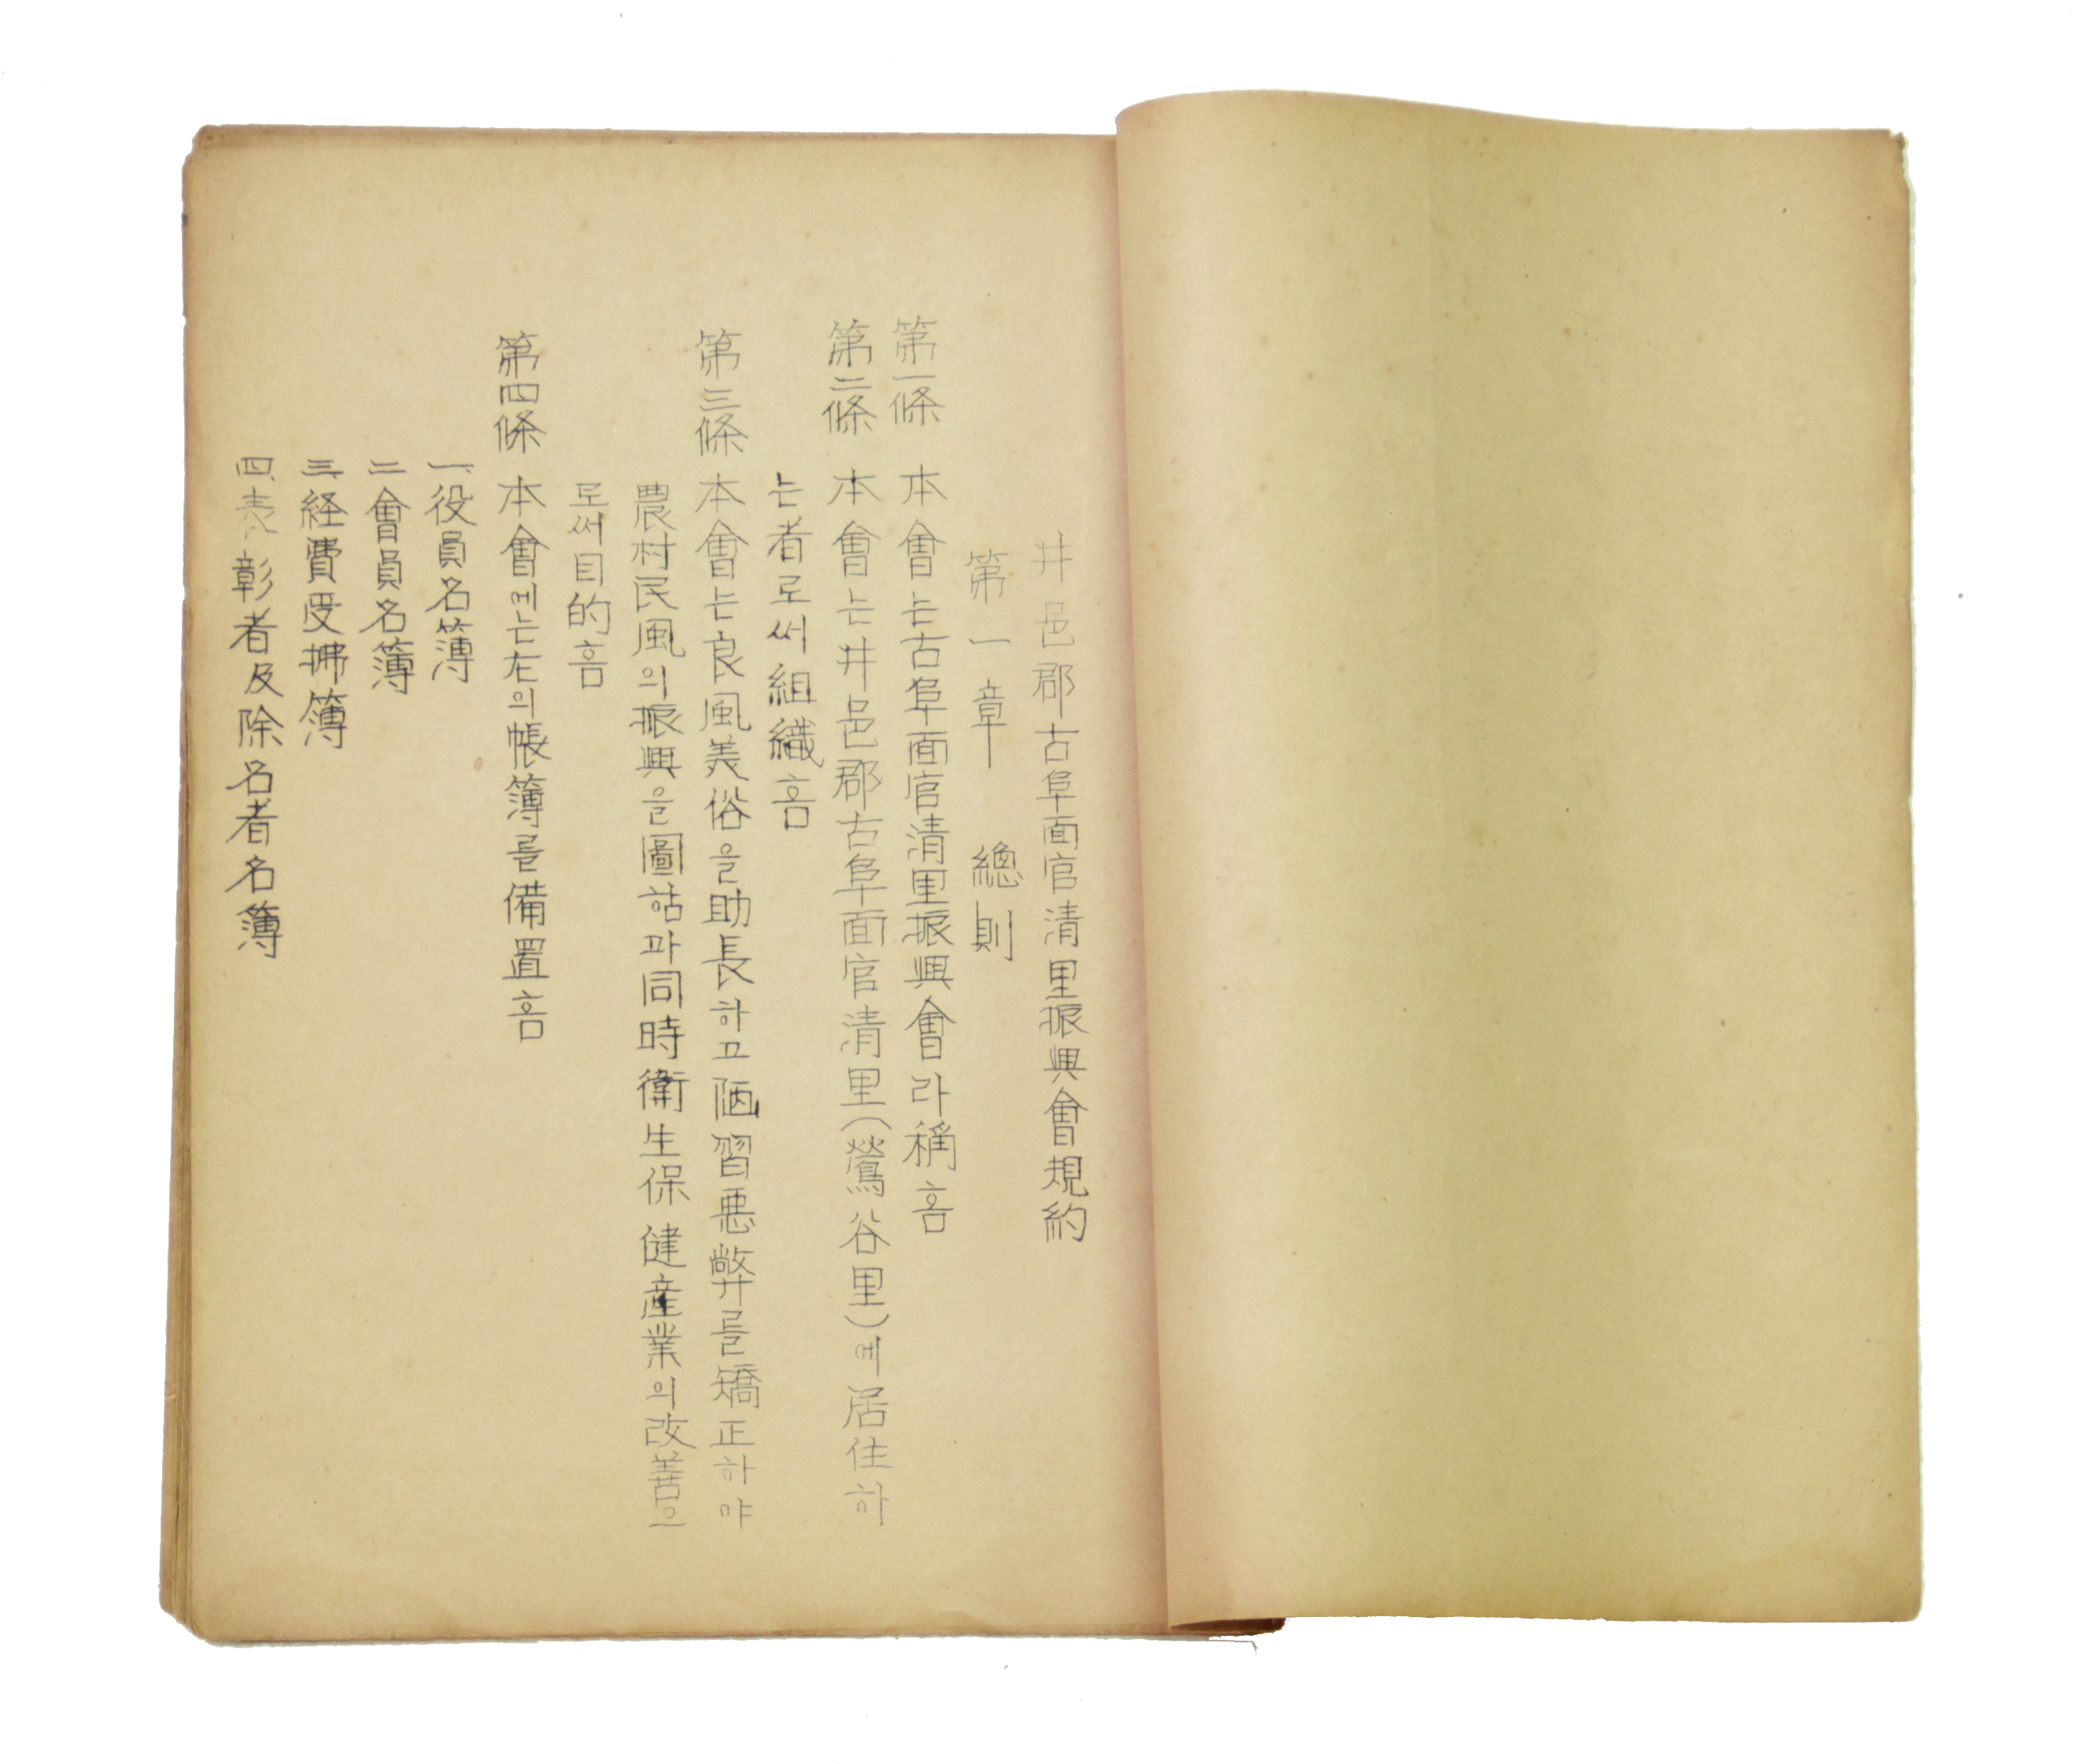 井邑郡古阜面官清里振興會規約
第一章 總則
第一條 本會는古阜面官清里振興會라稱홈
第二條 本會는井邑郡古阜面官清里(鶯谷里)에居住하
는者로써組織홈
第三條 本會는良風美俗을助長하고陋習悪弊를矯正하야
農村民風의振興을圖홈과同時衛生保健産業의改善으
로써目的홈
第四條 本會에는左의帳簿를備置홈
一、役員名簿
二 會員名簿
三、経費受拂簿
四、表彰者及除名者名簿